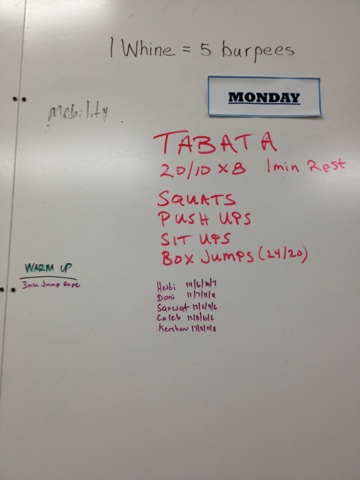 1 Whine = 5 burpees
MONDAY
Mobility
TABATA
20/10 x 8 1min Rest
SQUATS
PUSH UPS
SIT UPS
BOX JUMPS (24/20)
WARM UP
3min Jump Rope
Heidi
Dani
Caleb
Kershaw